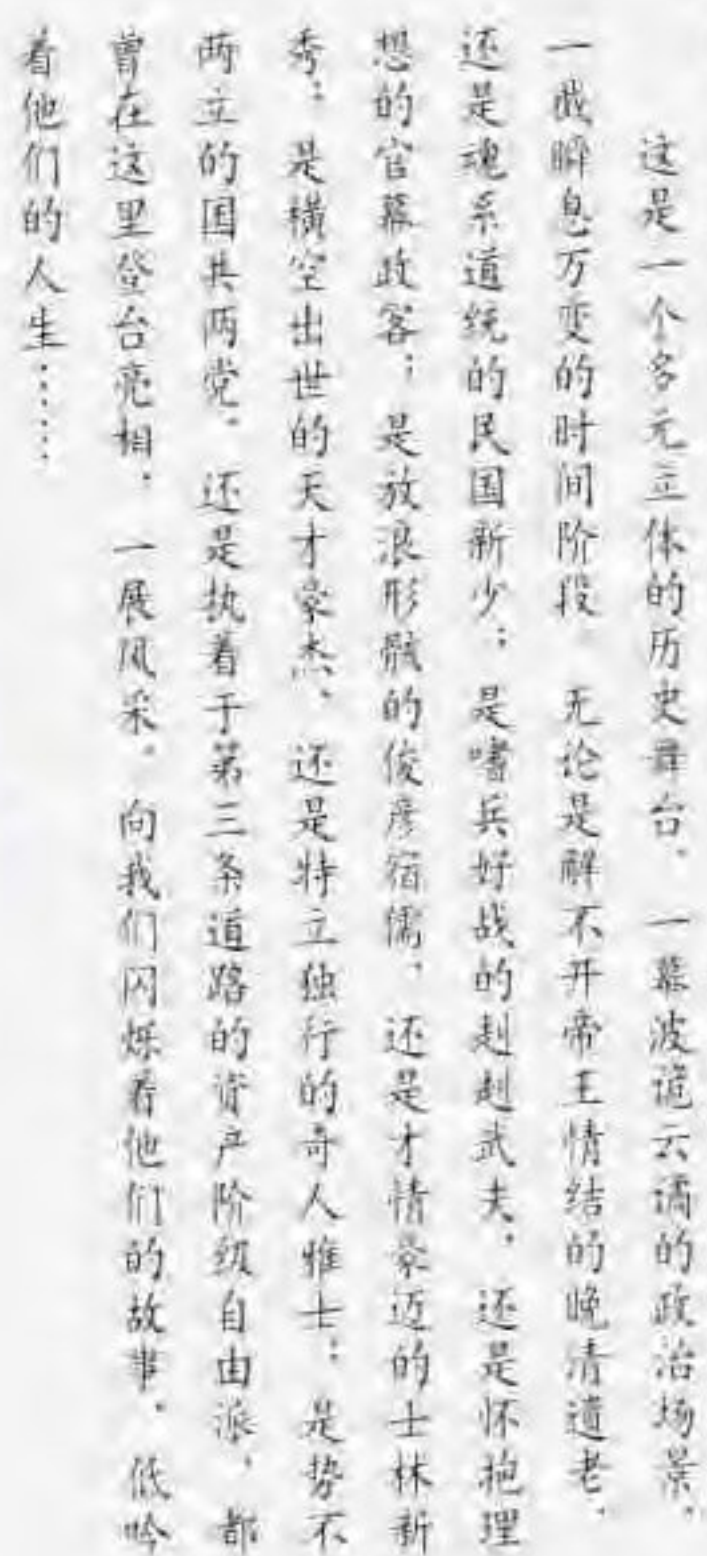 这是一个多元立体的历史舞台，一幕波诡云谲的政治场景，
一截瞬息万变的时间阶段。无论是解不开帝王情结的晚清遗老，
还是魂系道统的民国新少；是嗜兵好战的赳赳武夫，还是怀抱理
想的官幕政客；是放浪形骸的俊彦宿儒，还是才情豪迈的士林新
秀；是横空出世的天才豪杰，还是特立独行的奇人雅士；是势不
两立的国共两党，还是执着于第三条道路的资产阶级自由派，都
曾在这里登台亮相，一展风采。向我们闪烁着他们的故事，低吟
着他们的人生……